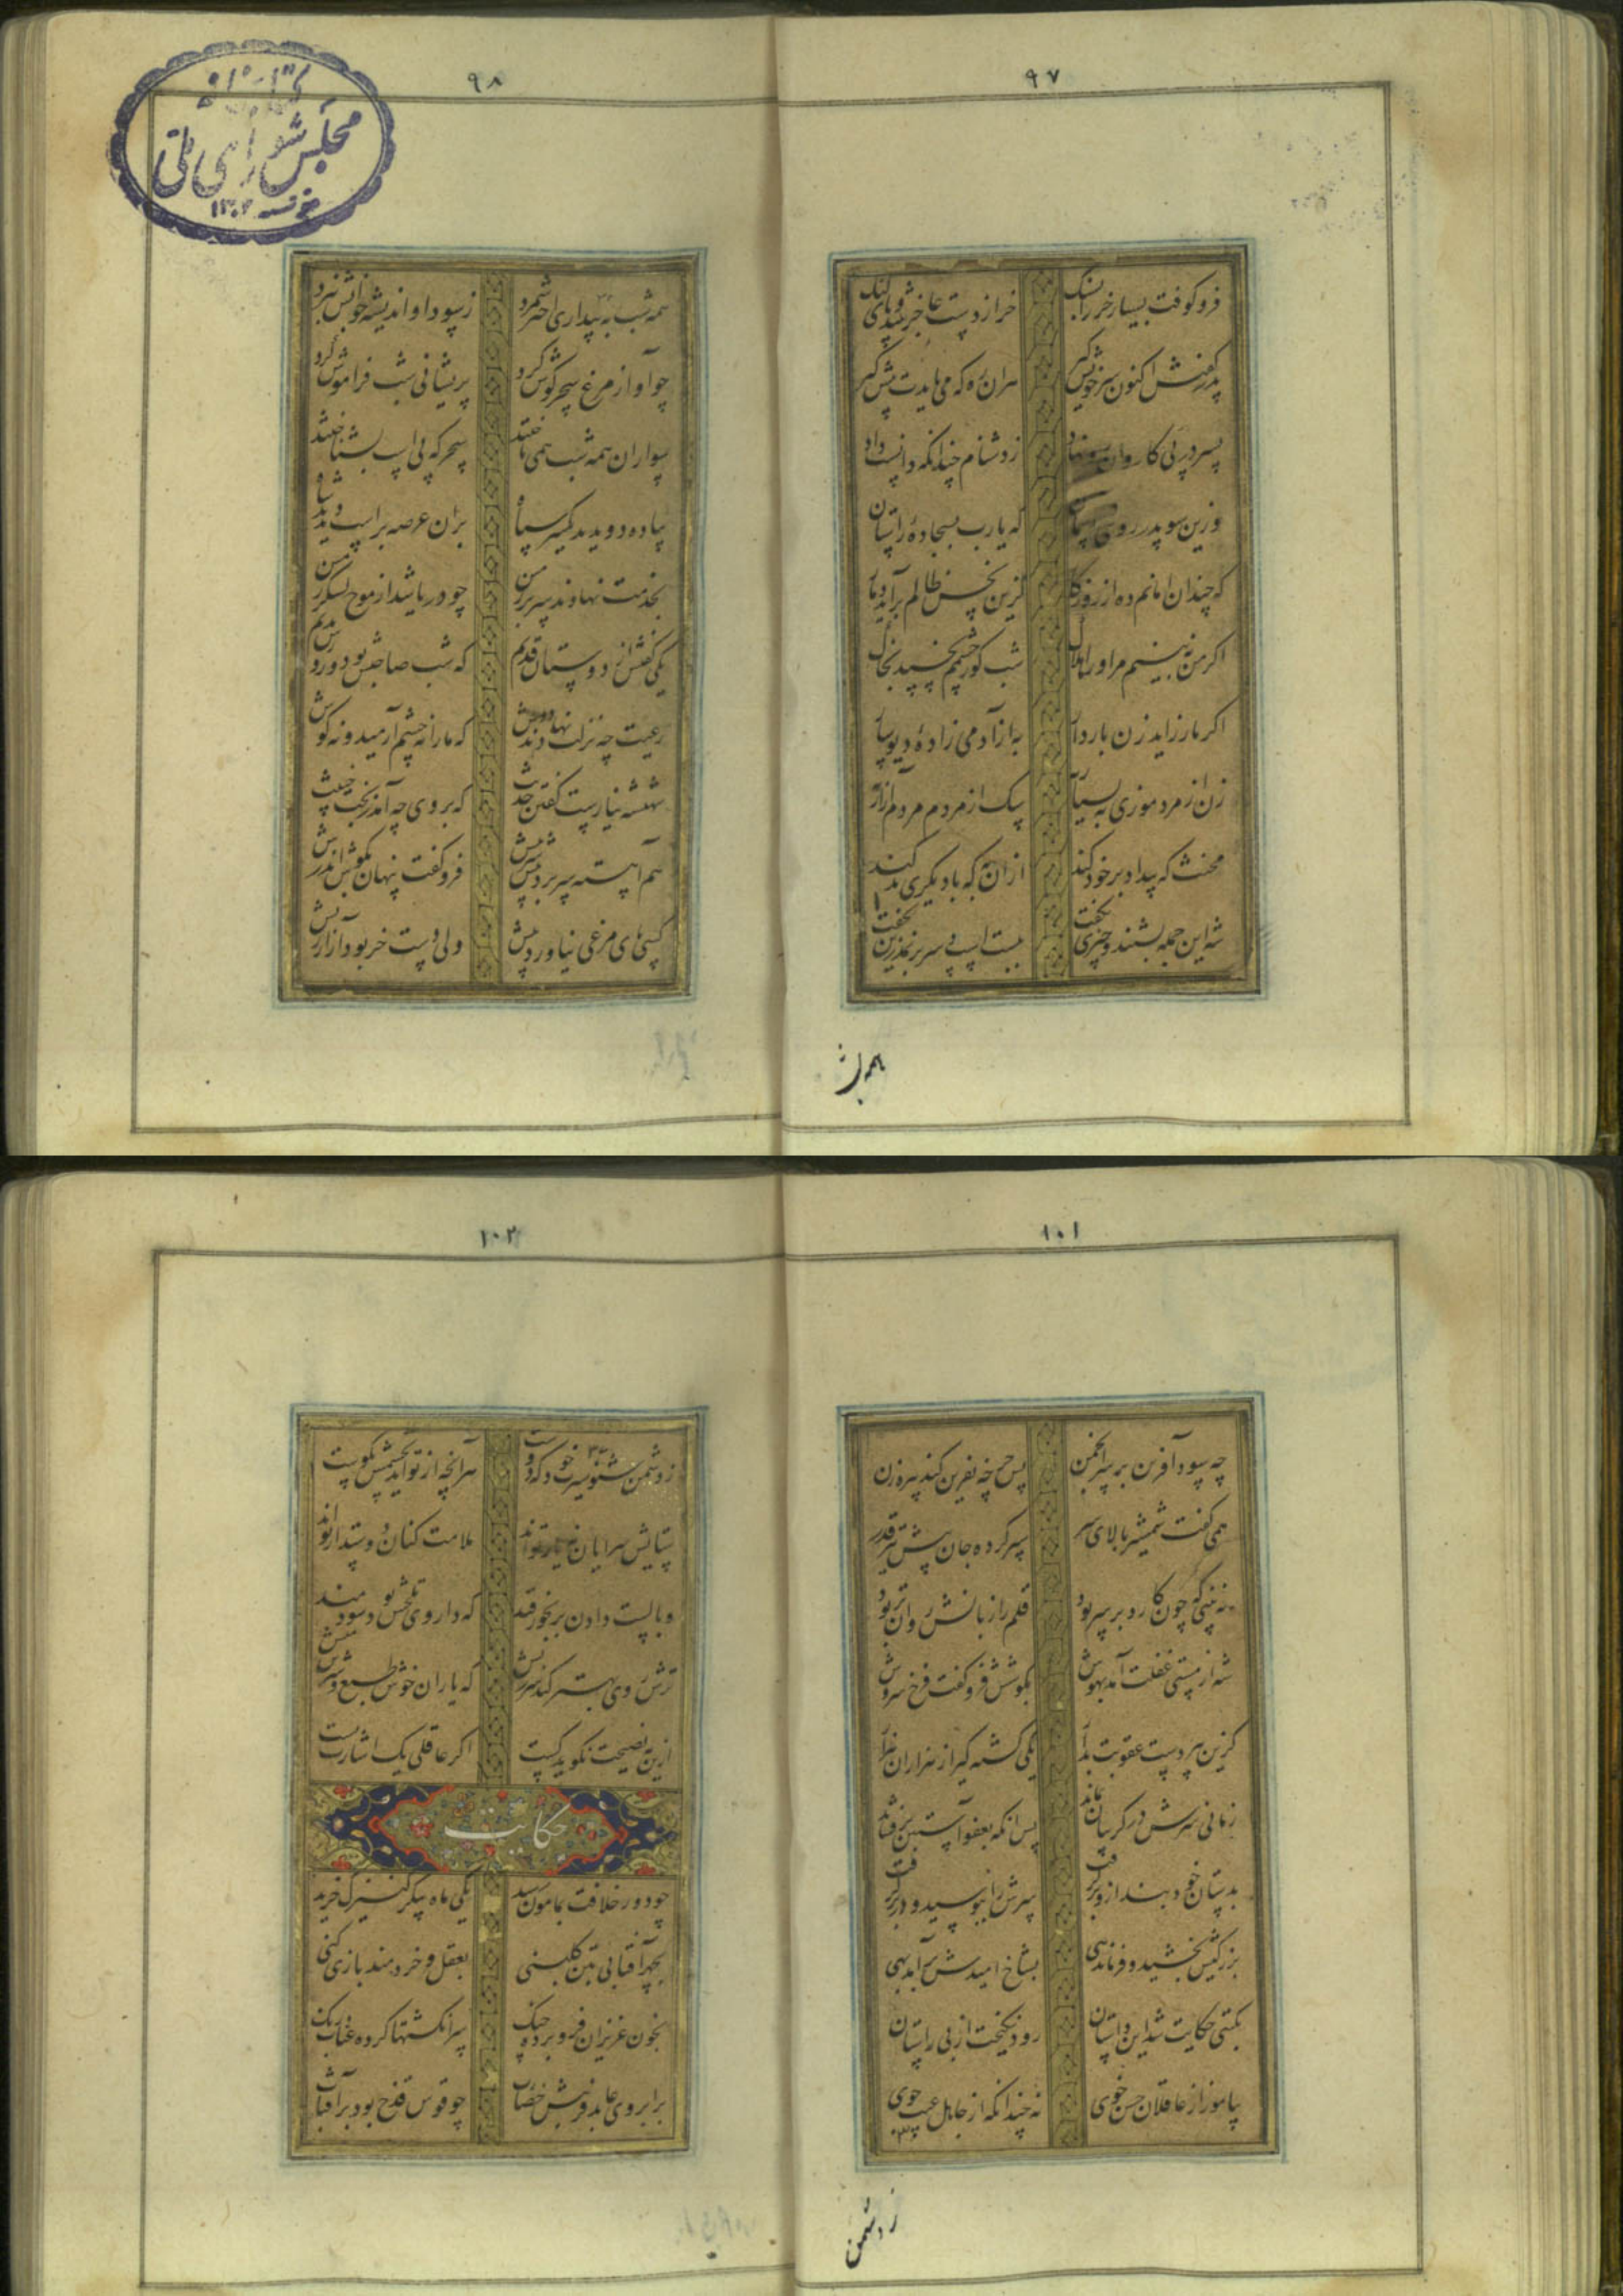 ۹۷
فرو کوفت بسیار خر را بسنگ خر از دست عاجز شد و پای لنگ
پدر گفتش اکنون سر خویش گیر هران ره که می بایدت پیش گیر
پسر در پی کاروان اوفتاد ز دشنام چندانکه دانست داد
وزین سو پدر روی در آسمان که یارب بسجاده راستان
که چندان امانم ده از روزگار کزین نحس ظالم برآید دمار
اگر من نه بینم مر او را هلاک شب گور چشمم نخسپد بخاک
اگر مار زاید زن باردار به از آدمی زاده دیوسار
زن از مرد موذی به بسیار به سگ از مردم مردم آزار به
مخنث که بیداد بر خود کند ازان به که با دیگری بد کند
شه این جمله بشنید و چیزی نگفت ببست اسپ و سر بر نمدزین بخفت
همه شب
۹۸
کتابخانه
مجلس شورای ملی
۱۳۰۲
همه شب به بیداری اختر شمرد ز سودا و اندیشه خوابش نبرد
چو آواز مرغ سحر گوش کرد پریشانی شب فراموش کرد
سواران همه شب همی تاختند سحرگه پی اسپ بشناختند
بران عرصه بر اسپ دیدند شاه پیاده دویدند یکسر سپاه
بخدمت نهادند سر بر زمین چو دریا شد از موج لشکر زمین
یکی گفتش از دوستان قدیم که شب حاجبش بود و روزش ندیم
رعیت چه نزلت نهادند دوش که ما را نه چشم آرمید و نه گوش
شهنشه نیارست گفتن حدیث که بر وی چه آمد ز خبث خبیث
هم آهسته سر برد پیش سرش فرو گفت پنهان بگوش اندرش
کسی پای مرغی نیاورد پیش ولی دست خر بود از اندازه بیش
۱۰۱
چه سود آفرین بر سر انجمن پس چرخه نفرین کند پیره زن
همی گفت شمشیر بالای سر سپر کرده جان پیش تیر قدر
نه بینی که چون کارد بر سر بود قلم را زبانش روان تر بود
شه از مستی غفلت آمد بهوش بگوشش فرو گفت فرخ سروش
کزین پیر دست عقوبت بدار یکی کشته گیر از هزاران هزار
زمانی سرش در گریبان بماند پس آنگه بعفو آستین برفشاند
بدستان خود بند ازو بر گرفت سرش را ببوسید و در بر گرفت
بزرگیش بخشید و فرماندهی بشاخ امیدش برآمد بهی
بگیتی حکایت شد این داستان رود نیکبخت از پی راستان
بیاموز از عاقلان حسن خوی نه چندانکه از جاهل عیب جوی
ز دشمن
۱۰۲
ز دشمن شنو سیرت خود که دوست هرآنچه از تو آید بچشمش نکوست
ستایش سرایان نه یار تواند ملامت کنان دوستدار تواند
وبالست دادن برنجور قند که داروی تلخش بود سودمند
ترش روی بهتر کند سرزنش که یاران خوش طبع شیرین منش
ازین به نصیحت نگوید کست اگر عاقلی یک اشارت بست
حکایت
چو دور خلافت بمامون رسید یکی ماه پیکر کنیزک خرید
بچهر آفتابی بتن گلبنی بعقل و خردمند بازی کنی
بخون عزیزان فرو برده چنگ سر انگشتها کرده عناب رنگ
بر ابروی عابد فریبش خضاب چو قوس قزح بود بر آفتاب